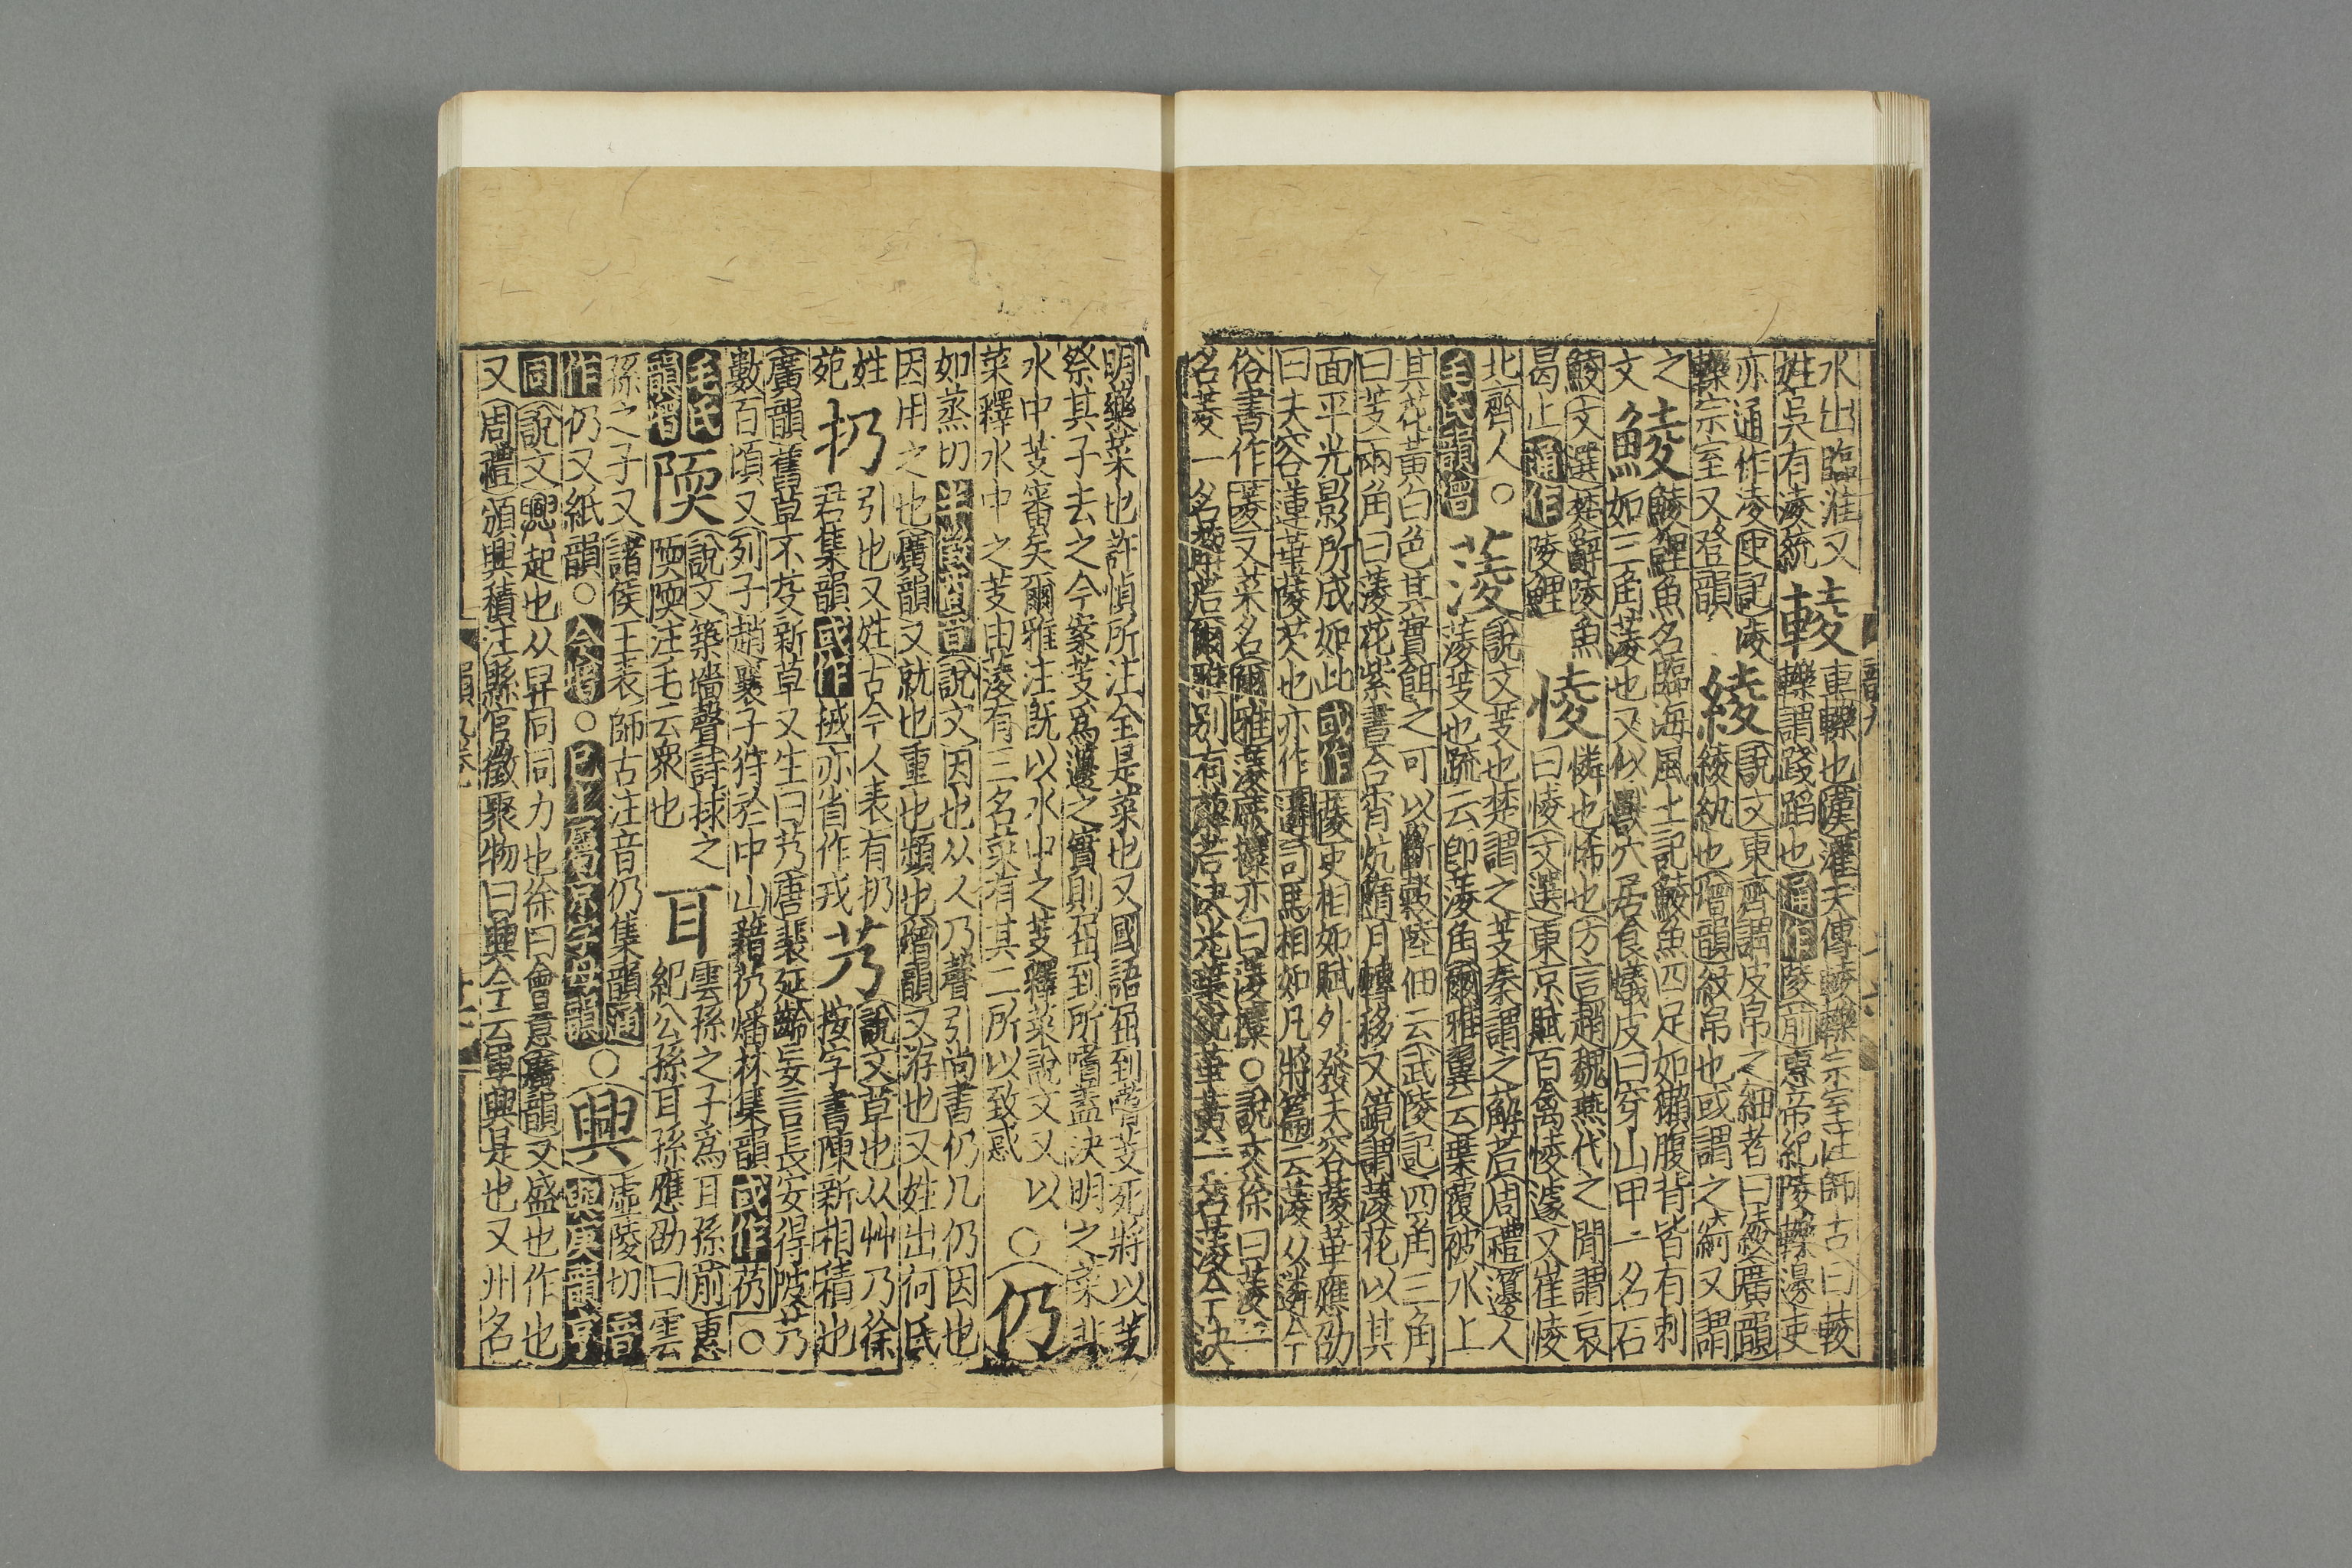 水出臨淮又
姓吳有淩統
輘
車轢也漢灌夫傳輘轢宗室注師古曰輘
轢謂踐蹈也通作陵前惠帝紀陵轢邊吏
亦通作淩史記淩
轢宗室又登韻
綾
說文東齊謂皮帛之細者曰綾廣韻
綾紈也增韻紋帛也或謂之綺又謂
之
文
鯪
鯪鯉魚名臨海風土記鯪魚四足如獺腹背皆有刺
如三角菱也又似獸穴居食蟻皮曰穿山甲一名石
鯪文選楚辭陵魚
曷止通作陵鯉
㥄
憐也怖也方言趙魏燕代之閒謂哀
曰㥄文選東京賦百禽㥄遽又崔㥄
北齊人○
毛氏韻增
蔆
說文芰也楚謂之芰秦謂之薢茩周禮籩人
蔆芰也疏云卽蔆角爾雅翼云葉覆被水上
其花黃白色其實餌之可以斷穀陸佃云武陵記四角三角
曰芰兩角曰蔆花紫晝合宵炕隨月轉移又鏡謂蔆花以其
面平光影所成如此或作䔖史相如賦外發夫容䔖華應劭
曰夫容蓮華䔖芡也亦作䔖司馬相如凡將篇云蔆从遴今
俗書作菱又菜名爾雅蔆蕨攗亦曰蔆䕷○說文徐曰菱一
名菱一名薢茩爾雅別有薢茩決光葉銳華黃一名蔆今丁決
明藥菜也許愼所注全是菜也又國語屈到嗜芰死將以芰
祭其子去之今案芰爲籩之實則屈到所嗜蓋決明之菜非
水中芰審矣爾雅注旣以水中之芰釋菜說文又以
菜釋水中之芰由蔆有三名菜有其二所以致惑
○仍
如蒸切半徵商音說文因也从人乃聲引尚書仍几仍因也
因用之也廣韻又就也重也頻也增韻又游也又姓出何氏
姓
苑
扔
引也又姓古今人表有扔
君集韻或作㧢亦省作戎
艿
說文草也从艸乃徐
按字書陳新相積也
廣韻舊草不芟新草又生曰艿唐裴延齡妄言長安得陂艿
數百頃又列子趙襄子狩於中山藉艿燔林集韻或作芿○
毛氏
韻增
陾
說文築墻聲詩捄之
陾陾注毛云衆也
耳
雲孫之子爲耳孫前惠
紀公孫耳孫應劭曰雲
孫之子又諸侯王表師古注音仍集韻通
作仍又紙韻○今增○已上屬京字母韻
○興
虛陵切音
與庚韻亨
同說文興起也从舁同同力也徐曰會意廣韻又盛也作也
又周禮頒興積注縣官徵聚物曰興今云軍興是也又州名